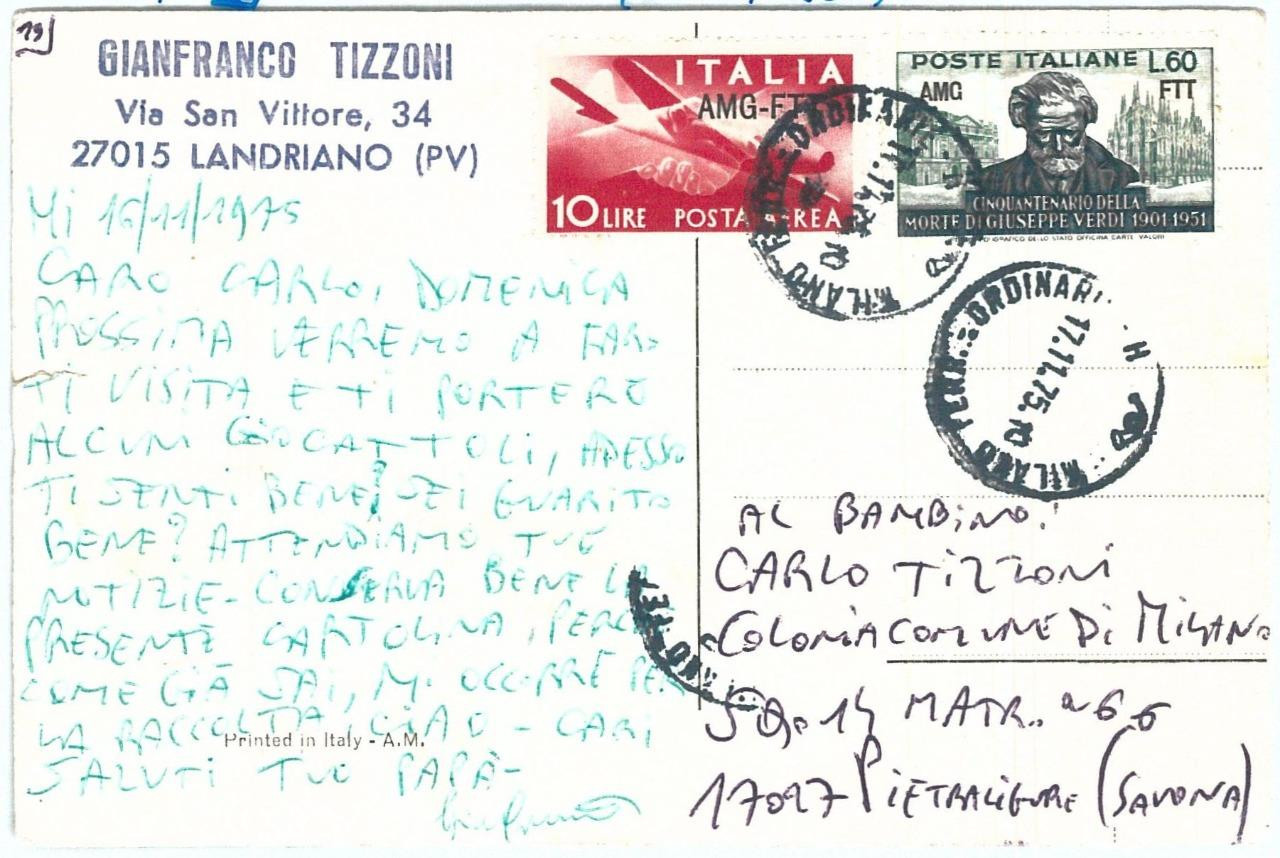 19
GIANFRANCO TIZZONI
Via San Vittore, 34
27015 LANDRIANO (PV)
Mi 16/11/1975
CARO CARLO, DOMENICA
PROSSIMA VERREMO A FAR-
TI VISITA E TI PORTERÒ
ALCUNI GIOCATTOLI, ADESSO
TI SENTI BENE? SEI GUARITO
BENE? ATTENDIAMO TUE
NOTIZIE - CONSERVA BENE LA
PRESENTE CARTOLINA, PERCHÈ
COME GIÀ SAI, MI OCCORRE PER
LA RACCOLTA, CIAO - CARI
SALUTI TUO PAPÀ-
Gianfranco
Printed in Italy - A.M.
ITALIA
AMG-FTT
10 LIRE POSTA AEREA
POSTE ITALIANE L.60
AMG FTT
CINQUANTENARIO DELLA
MORTE DI GIUSEPPE VERDI 1901-1951
MILANO FERR.=ORDINARI
17.11.75.10
MILANO FERR.=ORDINARI
17.11.75.10
AL BAMBINO:
CARLO TIZZONI
COLONIA COMUNE DI MILANO
SQ. 14 MATR. n 66
17027 PIETRALIGURE (SAVONA)